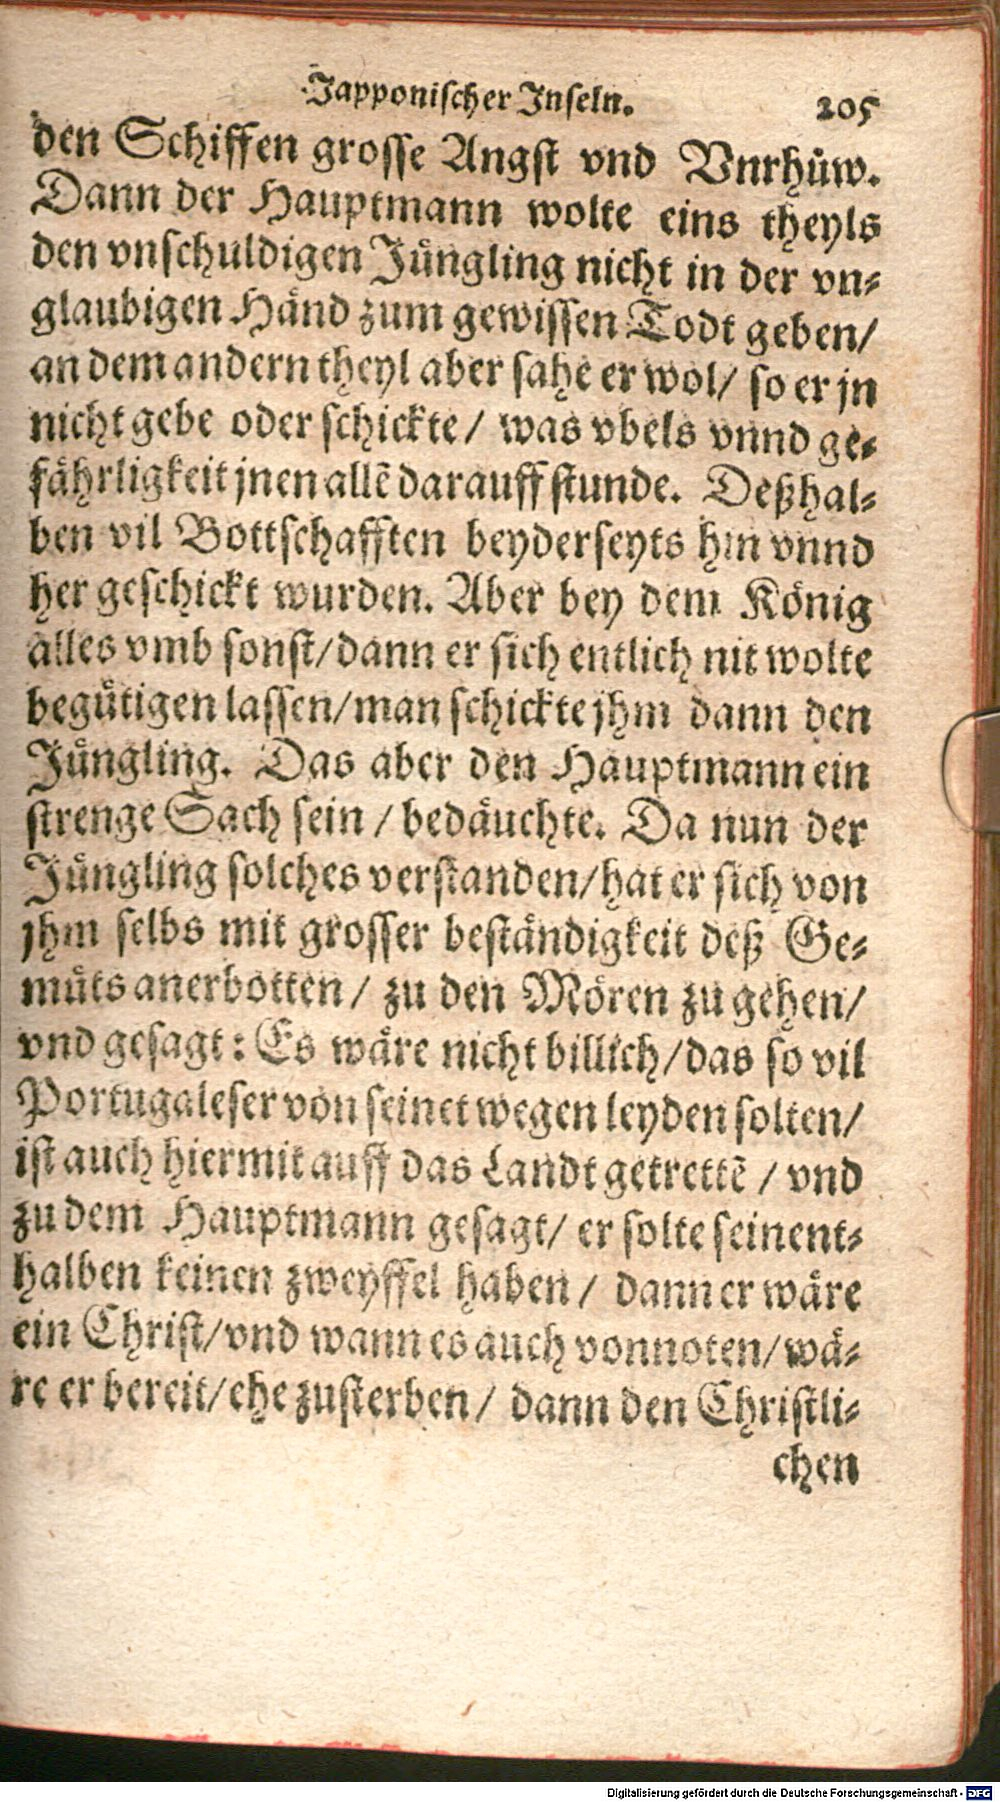 Japponischer Inseln. 205
den Schiffen grosse Angst vnd Vnrhůw.
Dann der Hauptmann wolte eins theyls
den vnschuldigen Jůngling nicht in der vn-
glaubigen Händ zum gewissen Todt geben/
an dem andern theyl aber sahe er wol/ so er jn
nicht gebe oder schickte/ was vbels vnnd ge-
fährligkeit jnen allẽ darauff stunde. Deßhal-
ben vil Bottschafften beyderseyts hin vnnd
her geschickt wurden. Aber bey dem König
alles vmb sonst/dann er sich entlich nit wolte
begůtigen lassen/man schickte jhm dann den
Jůngling. Das aber den Hauptmann ein
strenge Sach sein / bedäuchte. Da nun der
Jůngling solches verstanden/hat er sich von
jhm selbs mit grosser beständigkeit deß Ge-
můts anerbotten/ zu den Mören zu gehen/
vnd gesagt: Es wäre nicht billich/das so vil
Portugaleser von seinet wegen leyden solten/
ist auch hiermit auff das Landt getrettẽ / vnd
zu dem Hauptmann gesagt/ er solte seinent-
halben keinen zweyffel haben/ dann er wäre
ein Christ/vnd wann es auch vonnoten/wä-
re er bereit/ehe zusterben/ dann den Christli-
chen
Digitalisierung gefördert durch die Deutsche Forschungsgemeinschaft - DFG